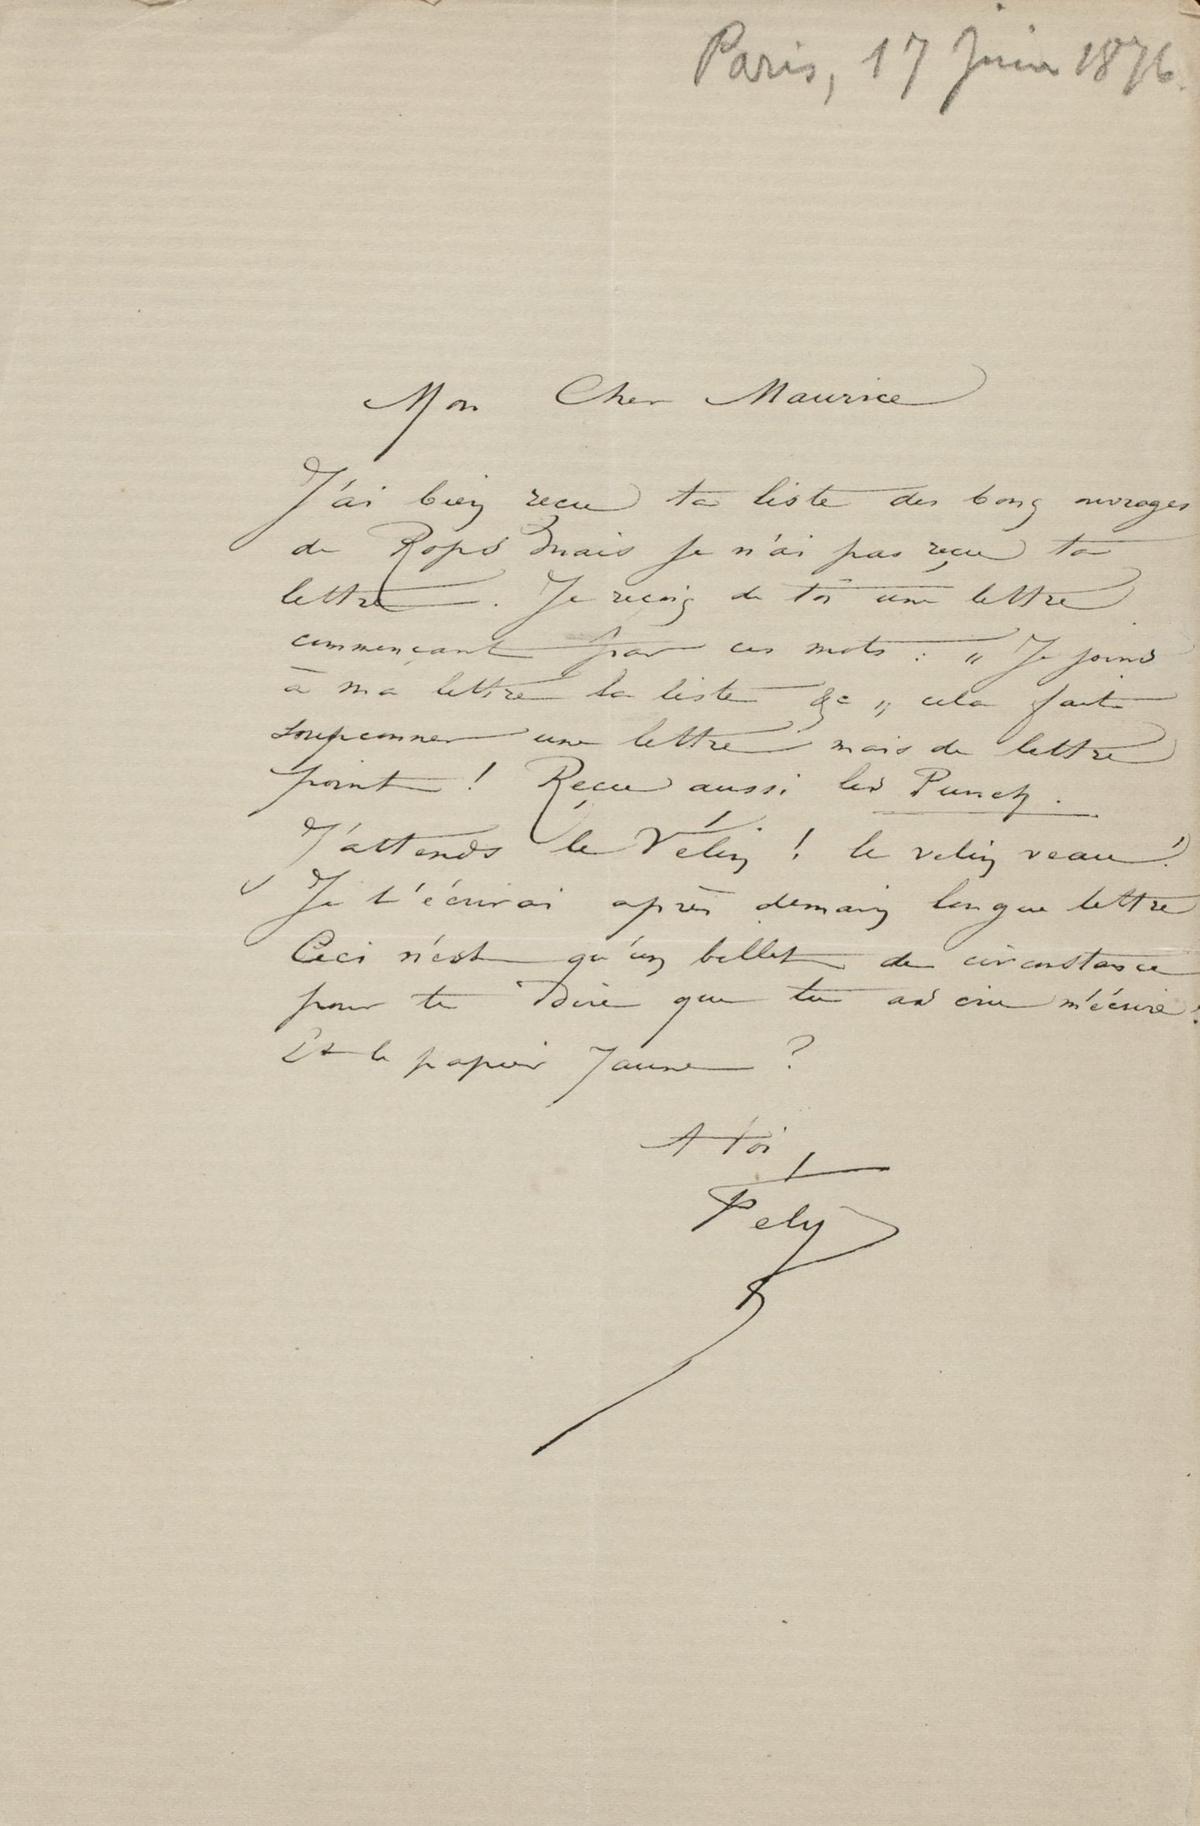 Paris, 17 Juin 1876.
Mon Cher Maurice
J'ai bien reçu ta liste des bons ouvrages
de Rops mais je n'ai pas reçu ta
lettre. Je reçois de toi une lettre
commençant par ces mots : " Je joins
à ma lettre la liste &c " cela fait
soupçonner une lettre mais de lettre
point ! Reçu aussi les Punch.
J'attends le Vélin ! le velin veau !
Je t'écrirai après demain longue lettre
Ceci n'est qu'un billet de circonstance
pour te dire que tu as cru m'écrire !
Et le papier Jaune ?
A toi
Fély